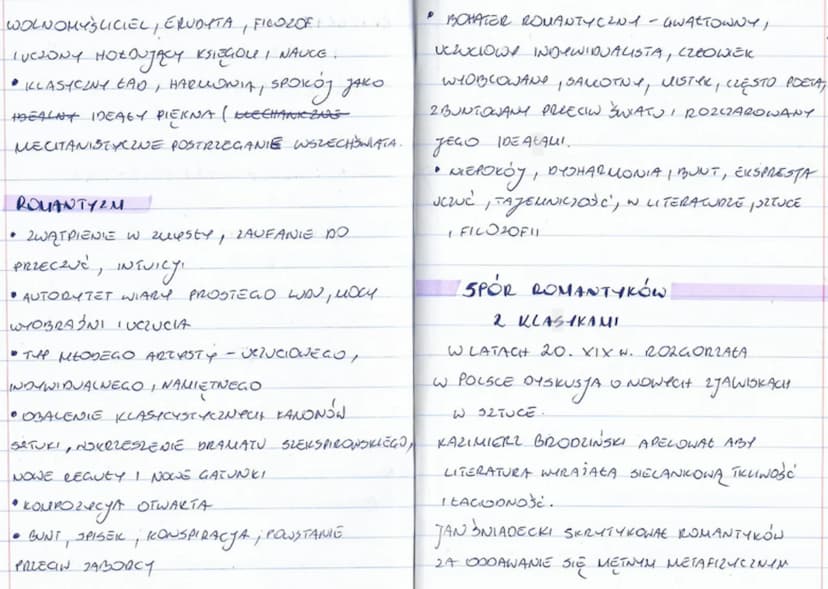 WOLNOMYŚLICIEL, ERUDYTA, FILOZOF
I UCZONY HOŁDUJĄCY KSIĘGOM I NAUCE.
• KLASYCZNY ŁAD, HARMONIA, SPOKÓJ JAKO
IDEALNY IDEAŁY PIĘKNA (MECHANICZNE
MECHANISTYCZNE POSTRZEGANIE WSZECHŚWIATA.
ROMANTYZM
• ZWĄTPIENIE W ZMYSŁY, ZAUFANIE DO
PRZECZUĆ, INTUICJI
• AUTORYTET WIARY PROSTEGO LUDU, MOCY
WYOBRAŹNI I UCZUCIA
• TYP MŁODEGO ARTYSTY - UCZUCIOWEGO,
INDYWIDUALNEGO, NAMIĘTNEGO
• OBALENIE KLASYCYSTYCZNYCH KANONÓW
SZTUKI, WSKRZESZENIE DRAMATU SZEKSPIROWSKIEGO,
NOWE REGUŁY I NOWE GATUNKI
• KOMPOZYCJA OTWARTA
• BUNT, SPISEK, KONSPIRACJA, POWSTANIE
PRZECIW ZABORCY
• BOHATER ROMANTYCZNY - GWAŁTOWNY,
UCZUCIOWY INDYWIDUALISTA, CZŁOWIEK
WYOBCOWANY, SAMOTNY, MISTYK, CZĘSTO POETA,
ZBUNTOWANY PRZECIW ŚWIATU I ROZCZAROWANY
JEGO IDEAŁAMI.
• NIEPOKÓJ, DYSHARMONIA, BUNT, EKSPRESJA
UCZUĆ, TAJEMNICZOŚĆ, W LITERATURZE, SZTUCE
I FILOZOFII
SPÓR ROMANTYKÓW
Z KLASYKAMI
W LATACH 20. XIX W. ROZGORZAŁA
W POLSCE DYSKUSJA O NOWYCH ZJAWISKACH
W SZTUCE.
KAZIMIERZ BRODZIŃSKI APELOWAŁ ABY
LITERATURA WYRAŻAŁA SIELANKOWĄ TKLIWOŚĆ
I ŁAGODNOŚĆ.
JAN ŚNIADECKI SKRYTYKOWAŁ ROMANTYKÓW
ZA ODDAWANIE SIĘ MĘTNYM METAFIZYCZNYM